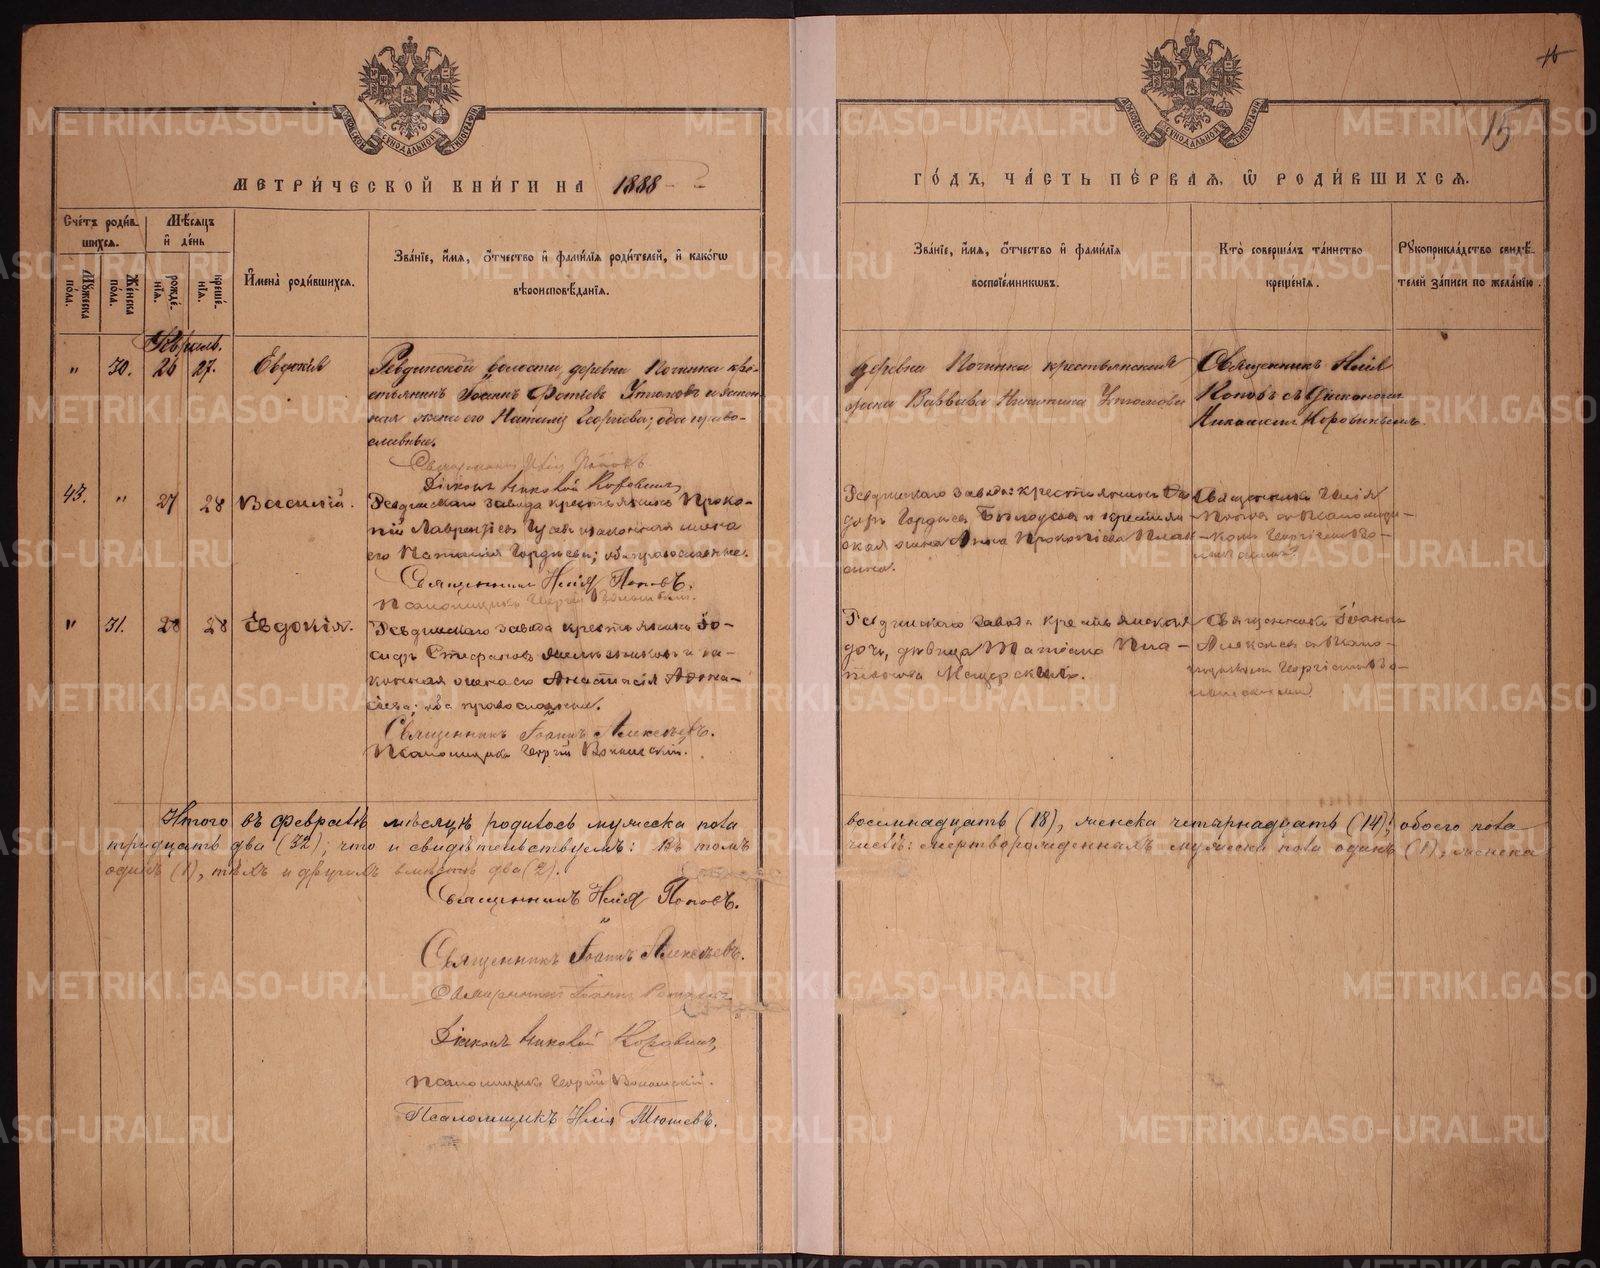 15
МЕТРИЧЕСКОЙ КНИГИ НА 1888
ГОДЪ, ЧАСТЬ ПЕРВАЯ, Ѡ РОДИВШИХСЯ.
Счетъ родив-
шихся.
Мѣсяцъ
и день
Мужеска пола.
Женска пола.
рожде-
нїя.
креще-
нїя.
Имена родившихся.
Званїе, имя, отчество и фамилїя родителей, и какогѡ
вѣроисповѣданїя.
Званїе, имя, отчество и фамилїя
воспрїемникѡвъ.
Кто совершалъ таинство
крещенїя.
Рукоприкладство свидѣ-
телей записи по желанїю.
Февраль.
" 30. 26 27. Евдокія
Ревдинской волости, деревни Починка кре-
стьянинъ Іоаннъ Фотіевъ и закон-
ная жена его Наталія Георгіева; оба право-
славные.
Священникъ Илія Поповъ
Діаконъ Николай Коровинъ
деревни Починка крестьянская
жена Варвара Никитина
Священникъ Илія
Поповъ съ Діакономъ
Николаемъ Коровинымъ
43. " 27 28 Василій.
Ревдинскаго завода крестьянинъ Проко-
пій Лаврентіевъ и законная жена
его Наталія Гордіева; оба православные.
Священникъ Илія Поповъ.
Псаломщикъ Георгій
Ревдинскаго завода: крестьянинъ Ѳе-
доръ Гордіевъ и крестьян-
ская жена Анна Прокопіева
Священникъ Илія
Поповъ съ Псаломщи-
комъ Георгіемъ
" 31. 28 28 Евдокія.
Ревдинскаго завода крестьянинъ Іо-
сифъ Стефановъ и за-
конная жена его Анастасія
оба православные.
Священникъ Іоаннъ Алексѣевъ.
Псаломщикъ Георгій
Ревдинскаго завода крестьянская
дочь, дѣвица Татіана Пла-
тонова Мещерскихъ.
Священникъ Іоаннъ
Алексѣевъ съ Псало-
мщикомъ Георгіемъ
Итого въ февралѣ мѣсяцѣ родилось мужеска пола
восемнадцать (18), женска четырнадцать (14); обоего пола
тридцать два (32); что и свидѣтельствуемъ: Въ томъ
числѣ: мертворожденныхъ мужеска пола одинъ (1), женска
одинъ (1), тѣхъ и другихъ вмѣстѣ два (2).
Священникъ Илія Поповъ.
Священникъ Іоаннъ Алексѣевъ.
Священникъ Іоаннъ
Діаконъ Николай Коровинъ,
Псаломщикъ Георгій
Псаломщикъ Илія Тюшевъ.
METRIKI.GASO-URAL.RU